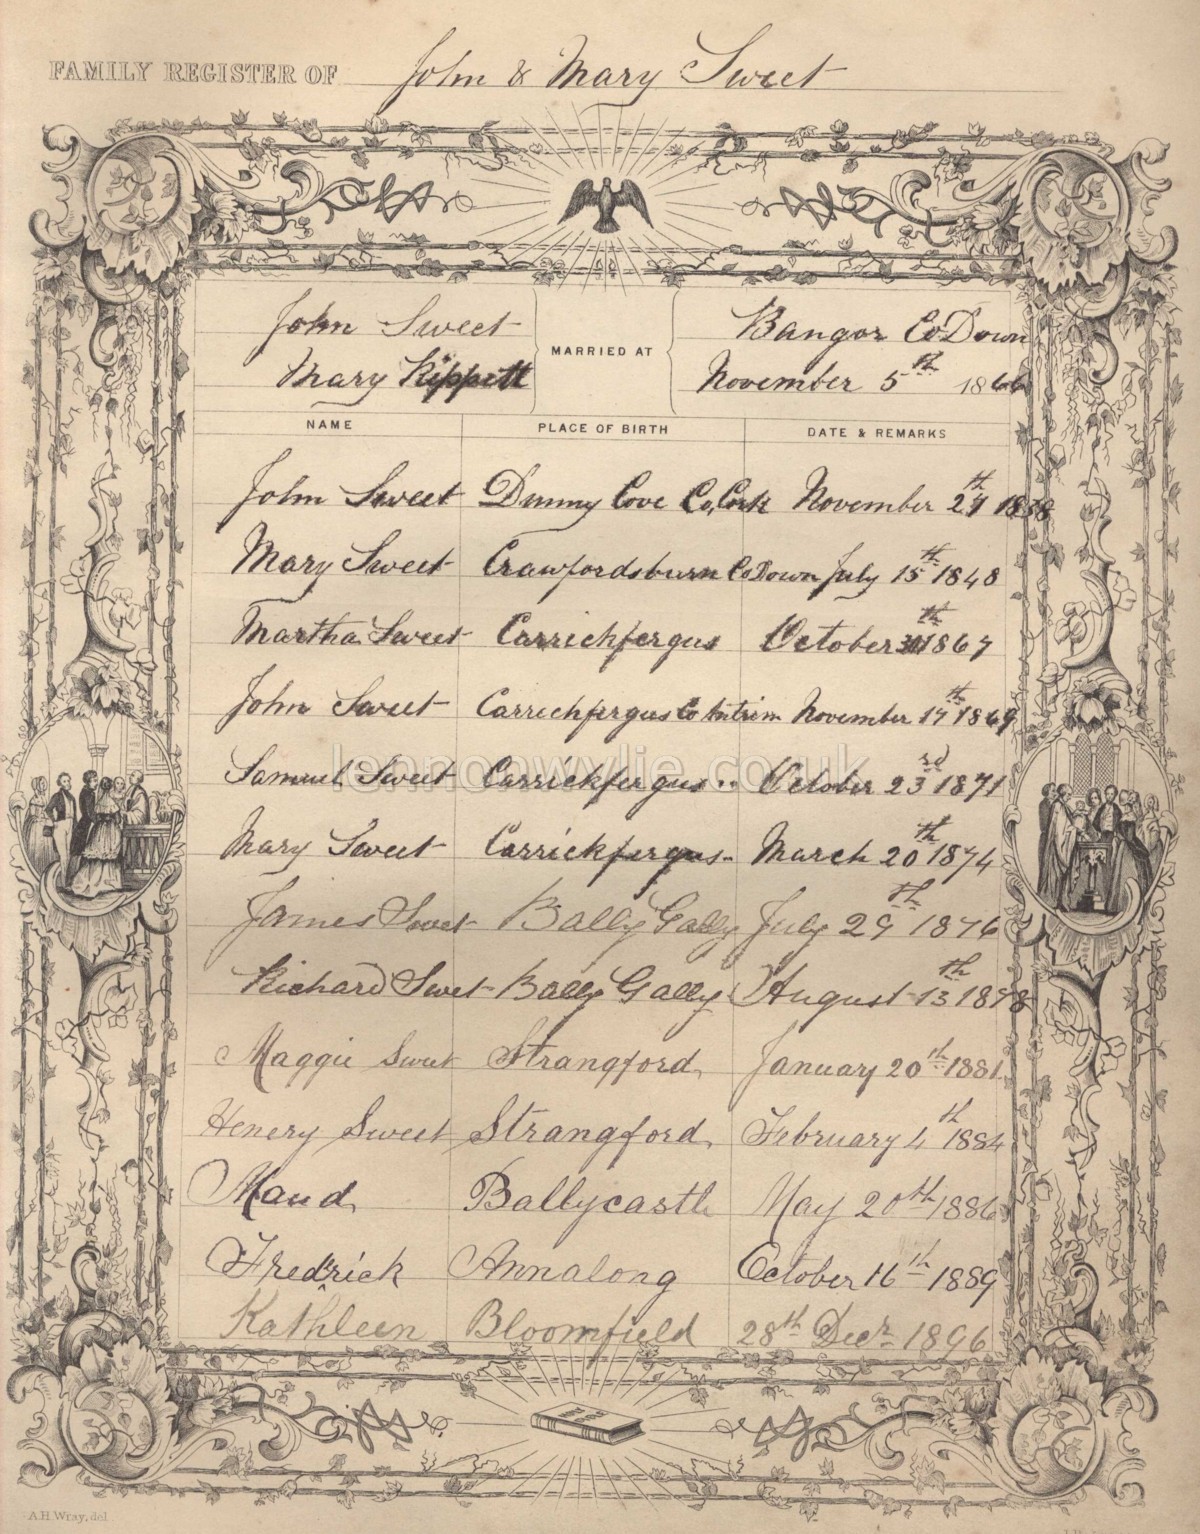 FAMILY REGISTER OF John & Mary Sweet
John Sweet
Mary Rippett
MARRIED AT
Bangor Co Down
November 5th 1866
NAME PLACE OF BIRTH DATE & REMARKS
John Sweet Dunny Cove Co, Cork November 1838
Mary Sweet Crawfordsburn Co Down July 15th 1848
Martha Sweet Carrickfergus October 1867
John Sweet Carrickfergus Co Antrim November 17th 1869
Samuel Sweet Carrickfergus .. October 23rd 1871
Mary Sweet Carrickfergus - March 20th 1874
James Sweet Bally Gally July 29th 1876
Richard Sweet Bally Gally August 13th 1878
Maggie Sweet Strangford, January 20th 1881
Henery Sweet Strangford, February 4th 1884
Maud, Ballycastle May 20th 1886
Fredrick Annalong October 16th 1889
Kathleen Bloomfield 28th Decr 1896
lennonwylie.co.uk
A.H. Wray, del.